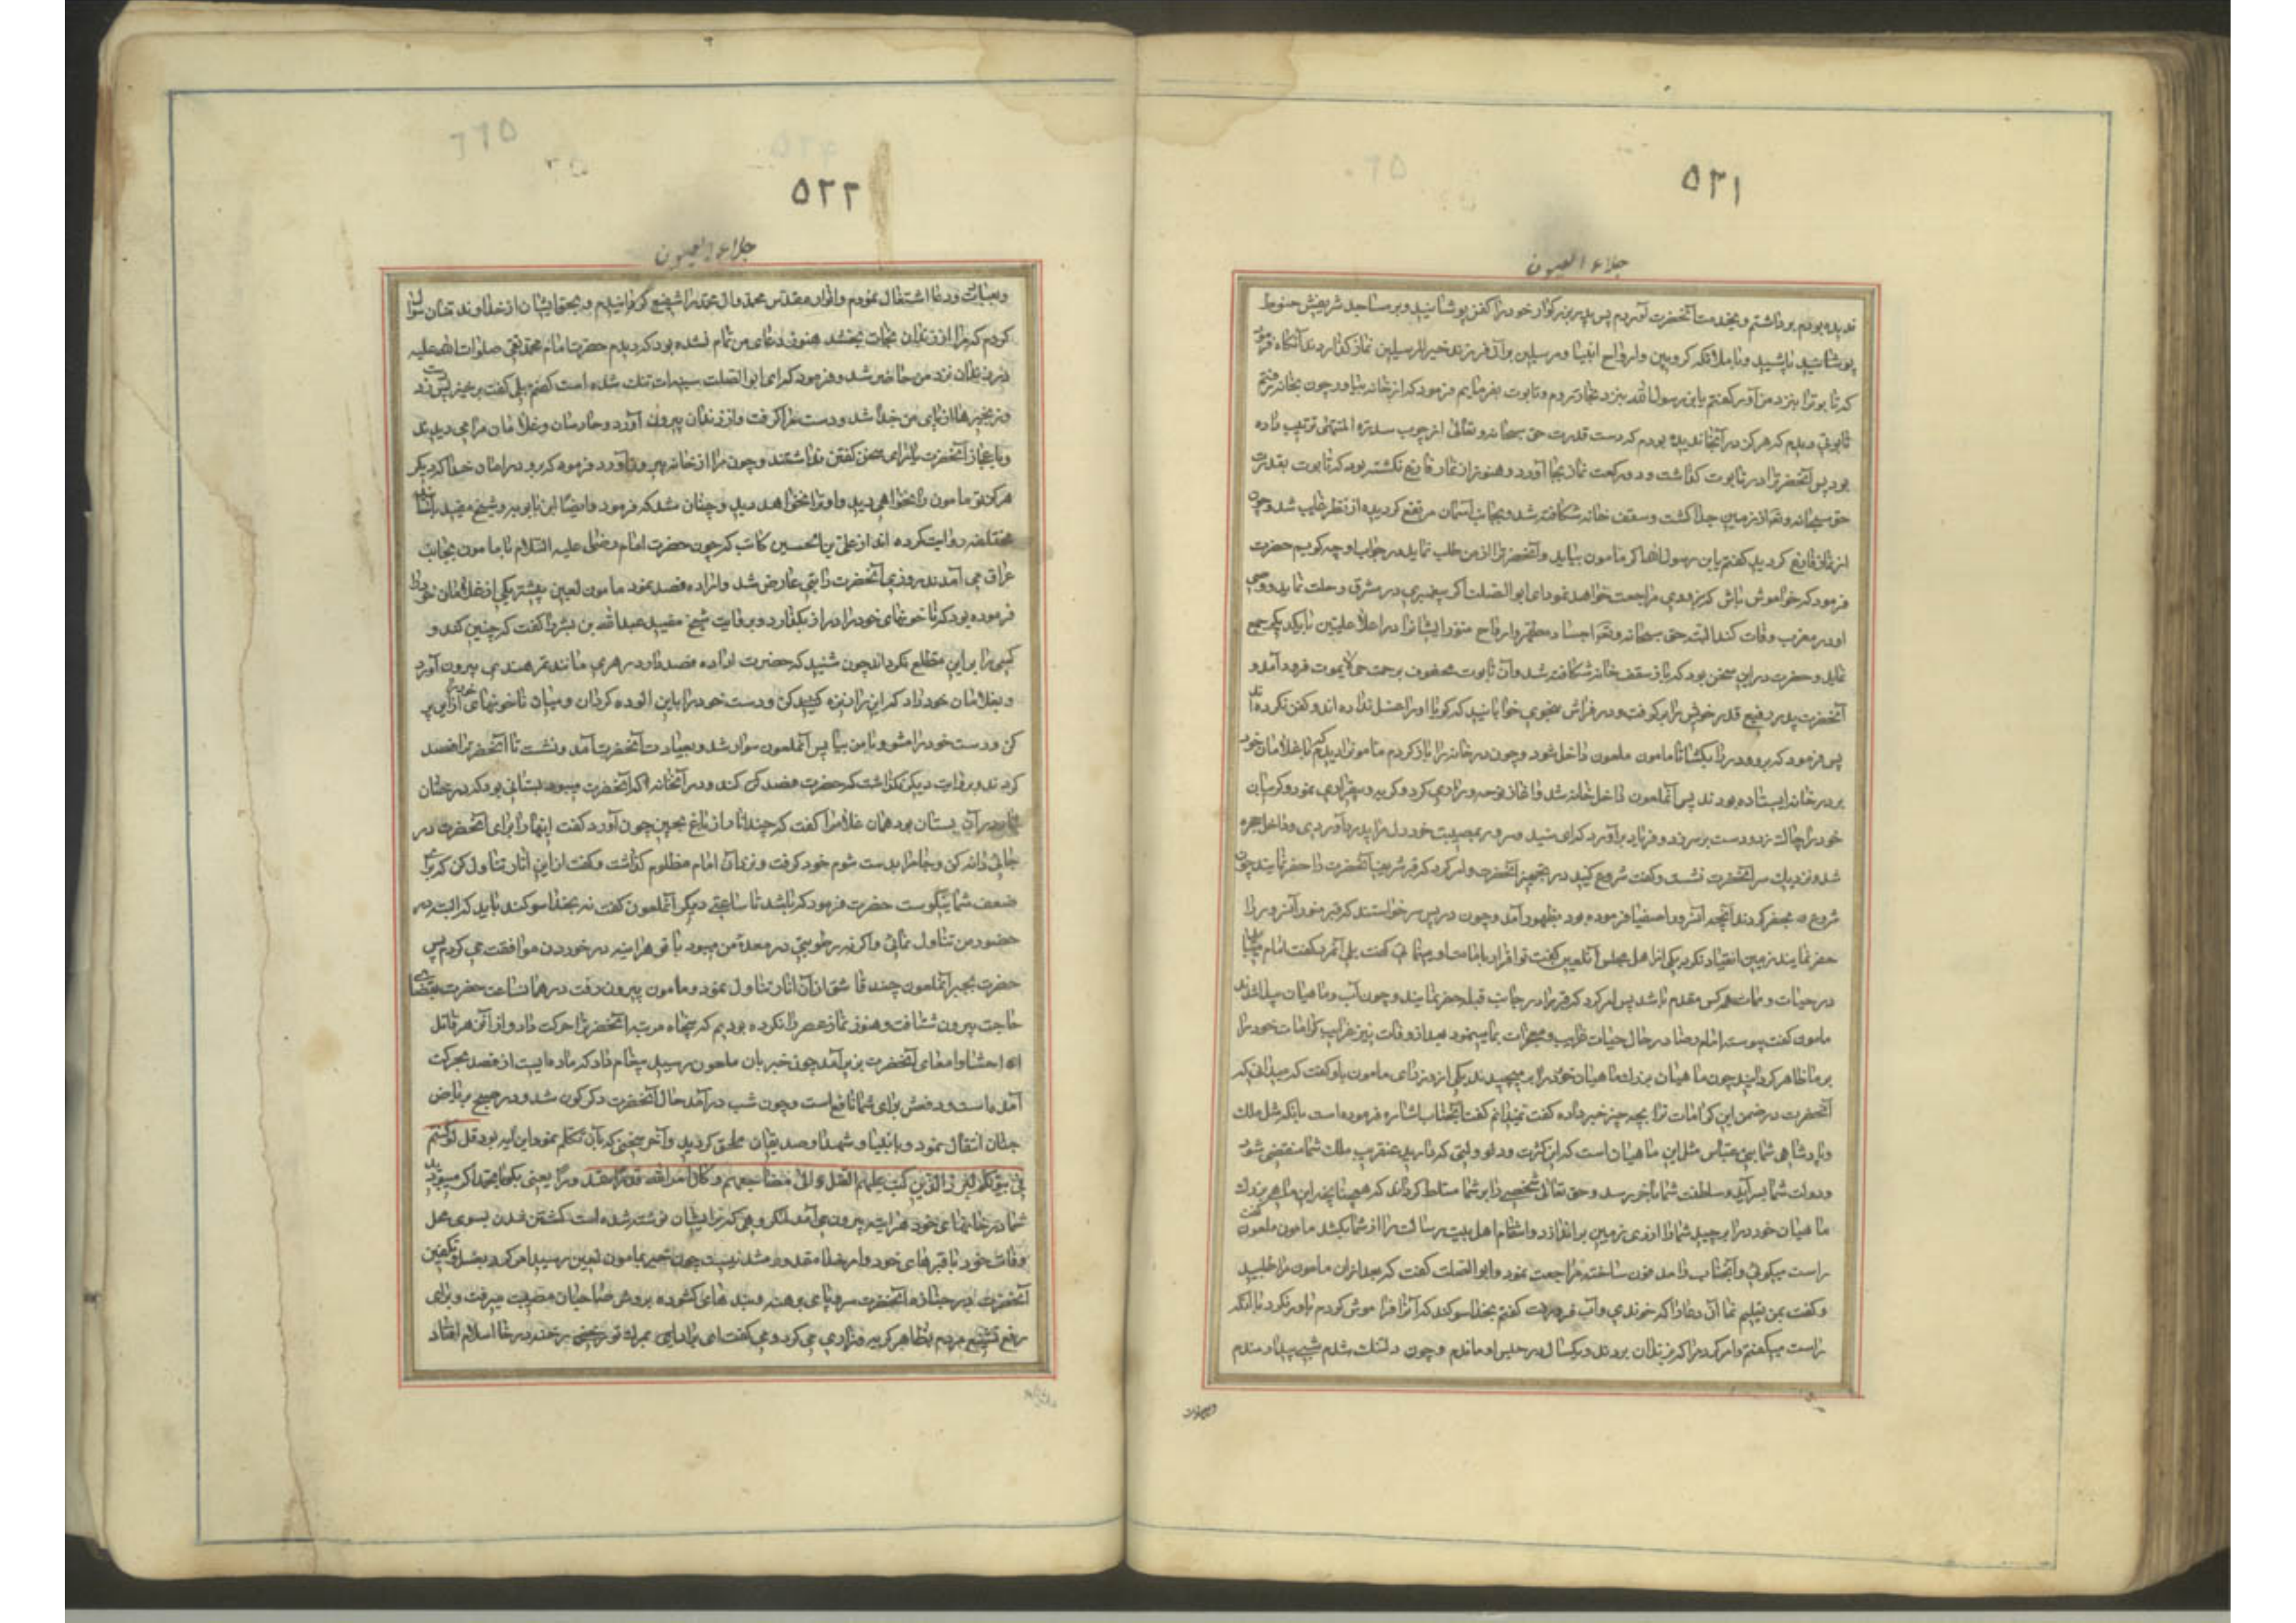 ۵۲۱
جلاء العیون
ندیده بودم برداشتم و بخدمت آنحضرت آوردم پس پدر بزرگوار خود را کفن پوشانید و بر مساجد شریفش حنوط
پاشید و با ملائکه کروبیین و ارواح انبیا و مرسلین بر آن فرزند خیر المرسلین نماز گذاردند آنگاه فرمود
که تابوترا بنزد من آور گفتم یابن رسول الله بنزد نجار بروم و تابوت بفرمایم فرمود که از خانه بیاور چون بخانه رفتم
تابوتی دیدم که هرگز در آنجا ندیده بودم که دست قدرت حق سبحانه و تعالی از چوب سدرة المنتهی ترتیب داده
بود پس آنحضرترا در تابوت گذاشت و دو رکعت نماز بجا آورد و هنوز از نماز فارغ نگشته بود که تابوت بقدرت
حق سبحانه و تعالی از زمین جدا گشت و سقف خانه شکافته شد و بجانب آسمان مرتفع گردیده از نظر غایب شد و چون
از نماز فارغ گردید گفتم یابن رسول الله اگر مامون بیاید و آنحضرترا از من طلب نماید در جواب او چه گویم حضرت
فرمود که خواموش باش که بزودی مراجعت خواهد نمود ای ابو الصلت اگر پیغمبری در مشرق رحلت نماید و وصی
او در مغرب وفات کند البته حق سبحانه و تعالی اجساد مطهر و ارواح منور ایشانرا در اعلا علیین با یکدیگر جمع
نماید و حضرت در این سخن بود که باز سقف خانه شکافته شد و آن تابوت محفوف برحمت حی لا یموت فرود آمد و
آنحضرت پدر رفیع قدر خویش را برگرفت و در فراش بنحوی خوابانید که گویا او را غسل نداده اند و کفن نکرده اند
پس فرمود که برو و در را بکشا تا مامون ملعون داخل شود و چون در خانه را باز کردم مامونرا دیدم که با غلامان خود
بر در خانه ایستاده بودند پس آنملعون داخل خانه شد و آغاز نوحه و زاری کرد و گریه و بیقراری نمود و گریبان
خود را چاک زد و دست بر سر زد و فریاد برآورد که ای سید و سرور بمصیبت خود دل مرا بدرد آوردی و داخل حجره
شد و نزدیک سر آنحضرت نشست و گفت شروع کنید در تجهیز آنحضرت و امر کرد که قبر شریف آنحضرت را حفر نمایند چون
شروع بحفر کردند آنچه آنسرور اصفیا فرموده بود بظهور آمد و چون در پس سر خواستند که قبر منور آنسرور را
حفر نمایند زمین انقیاد نکرد یکی از اهل مجلس آنلعین گفت تو اقرار بامامت او مینمائی گفت بلی آنمرد گفت امام میباید
در حیات و ممات بر همه کس مقدم باشد پس امر کرد که قبر را در جانب قبله حفر نمایند و چون آب و ماهیان پیدا شدند
مامون گفت پیوسته امام رضا در حال حیات غرایب و معجزات بما مینمود بعد از وفات نیز غرایب کرامات خود را
بر ما ظاهر گردانید چون ماهیان بزرگ ماهیان خورد را برچیدند یکی از وزرای مامون باو گفت که میدانی که
آنحضرت در ضمن این کرامات ترا بچه چیز خبر داده گفت نمیدانم گفت آنجناب اشاره فرموده است بانکه مثل ملک
و پادشاهی شما بنی عباس مثل این ماهیان است که این کثرت و دولتی که دارید عنقریب ملک شما منقضی شود
و دولت شما بسر آید و سلطنت شما بآخر رسد و حق تعالی شخصی را بر شما مسلط گرداند که همچنانچه این ماهی بزرگ
ماهیان خورد را برچید شما را از روی زمین براندازد و انتقام اهل بیت رسالت را از شما بکشد مامون ملعون گفت
راست میگوئی و آنجناب را مدفون ساخته مراجعت نمود و ابو الصلت گفت که بعد از آن مامون مرا طلبید
و گفت بمن تعلیم نما آن دعا را که خوندی و آب فرو رفت گفتم بخدا سوگند که آنرا فراموش کردم باور نکرد با آنکه
راست میگفتم و امر کرد مرا که بزندان بردند و یکسال در حبس او ماندم و چون دلتنگ شدم شبی بیدار ماندم
و بعبادت
۵۲۲
جلاء العیون
و بعبادت و دعا اشتغال نمودم و انوار مقدس محمد و آل محمد را شفیع گردانیدم و بحق ایشان از خداوند منان سؤال
کردم که مرا از زندان نجات بخشد هنوز دعای من تمام نشده بود که دیدم حضرت امام محمد تقی صلوات الله علیه
در زندان نزد من حاضر شد و فرمود که ای ابو الصلت سینه ات تنگ شده است گفتم بلی گفت برخیز پس دست زد
و زنجیرها از پای من جدا شد و دست مرا گرفت و از زندان بیرون آورد و حارسان و غلامان مرا می دیدند
و باعجاز آنحضرت یارای سخن گفتن نداشتند و چون مرا از خانه بیرون آورد فرمود که برو در امان خدا که دیگر
هرگز تو مامون را نخواهی دید و او ترا نخواهد دید و چنان شد که فرمود و ایضا ابن بابویه و شیخ مفید باسناد
مختلفه روایت کرده اند از علی بن الحسین کاتب که چون حضرت امام رضا علیه السلام با مامون بجانب
عراق می آمدند روزی آنحضرت را تبی عارض شد و اراده فصد نمود مامون لعین پیشتر یکی از غلامان خود را
فرموده بود که ناخنهای خود را دراز بگذارد و بروایت شیخ مفید عبدالله بن بشر را گفت که چنین کند و
کسی را بر این مطلع نگرداند چون شنید که حضرت اراده فصد دارد زهری مانند تمر هندی بیرون آورد
و بغلامان خود داد که این را ریزه کن و دست خود را باین آلوده گردان و میان ناخونهای خود را از این پر
کن و دست خود را مشو و با من بیا پس آنملعون سوار شد و بعیادت آنحضرت آمد و نشست تا آنحضرترا فصد
کردند و بروایت دیگر نگذاشت که حضرت فصد کند و در آنخانه که آنحضرت میبود بستانی بود که درختان
انار در آن بستان بود همان غلام را گفت که چند انار از باغ بچین چون آورد گفت اینها را برای آنحضرت در
جامی دانه کن و جامرا بدست شوم خود گرفت و نزد آن امام مظلوم گذاشت و گفت از این انار تناول کن که برای
ضعف شما نیکوست حضرت فرمود که باشد تا ساعتی دیگر آنملعون گفت نه بخدا سوگند باید که البته در
حضور من تناول نمائی و اگر نه رطوبتی در معدهٔ من میبود با تو هراینه در خوردن موافقت می کردم پس
حضرت بجبر آنملعون چند قاشق از آن انار تناول نمود و مامون بیرون رفت در همان ساعت حضرت بقضای
حاجت بیرون شتافت و هنوز نماز عصر را نکرده بودیم که پنجاه مرتبه آنحضرترا حرکت داد و از آن زهر قاتل
احشا و امعای آنحضرت بزیر آمد چون خبر بان ملعون رسید پیغام داد که ماده ایست از فصد بحرکت
آمده است و دفعش برای شما نافع است و چون شب در آمد حال آنحضرت دگرگون شد و در صبح بریاض
جنان انتقال نمود و بانبیا و شهدا و صدیقان ملحق گردید و آخر سخنی که بآن تکلم نمود این آیه بود قل لو کنتم
فی بیوتکم لبرز الذین کتب علیهم القتل الی مضاجعهم و کان امر الله قدرا مقدورا یعنی بگو یا محمد اگر میبودید
شما در خانهای خود هراینه بیرون می آمدند گروهی که بر ایشان نوشته شده است کشته شدن بسوی محل
وفات خود یا قبرهای خود و امر خدا مقدور و شدنیست چون خبر بمامون لعین رسید امر کرد بغسل و تکفین
آنحضرت و در جنازه آنحضرت سر و پای برهنه و بند های گشوده بروش صاحبان مصیبت میرفت و برای
رفع تشنیع مردم بظاهر گریه و زاری می کرد و می گفت ای برادر بمرگ تو رخنه در خانه اسلام افتاد